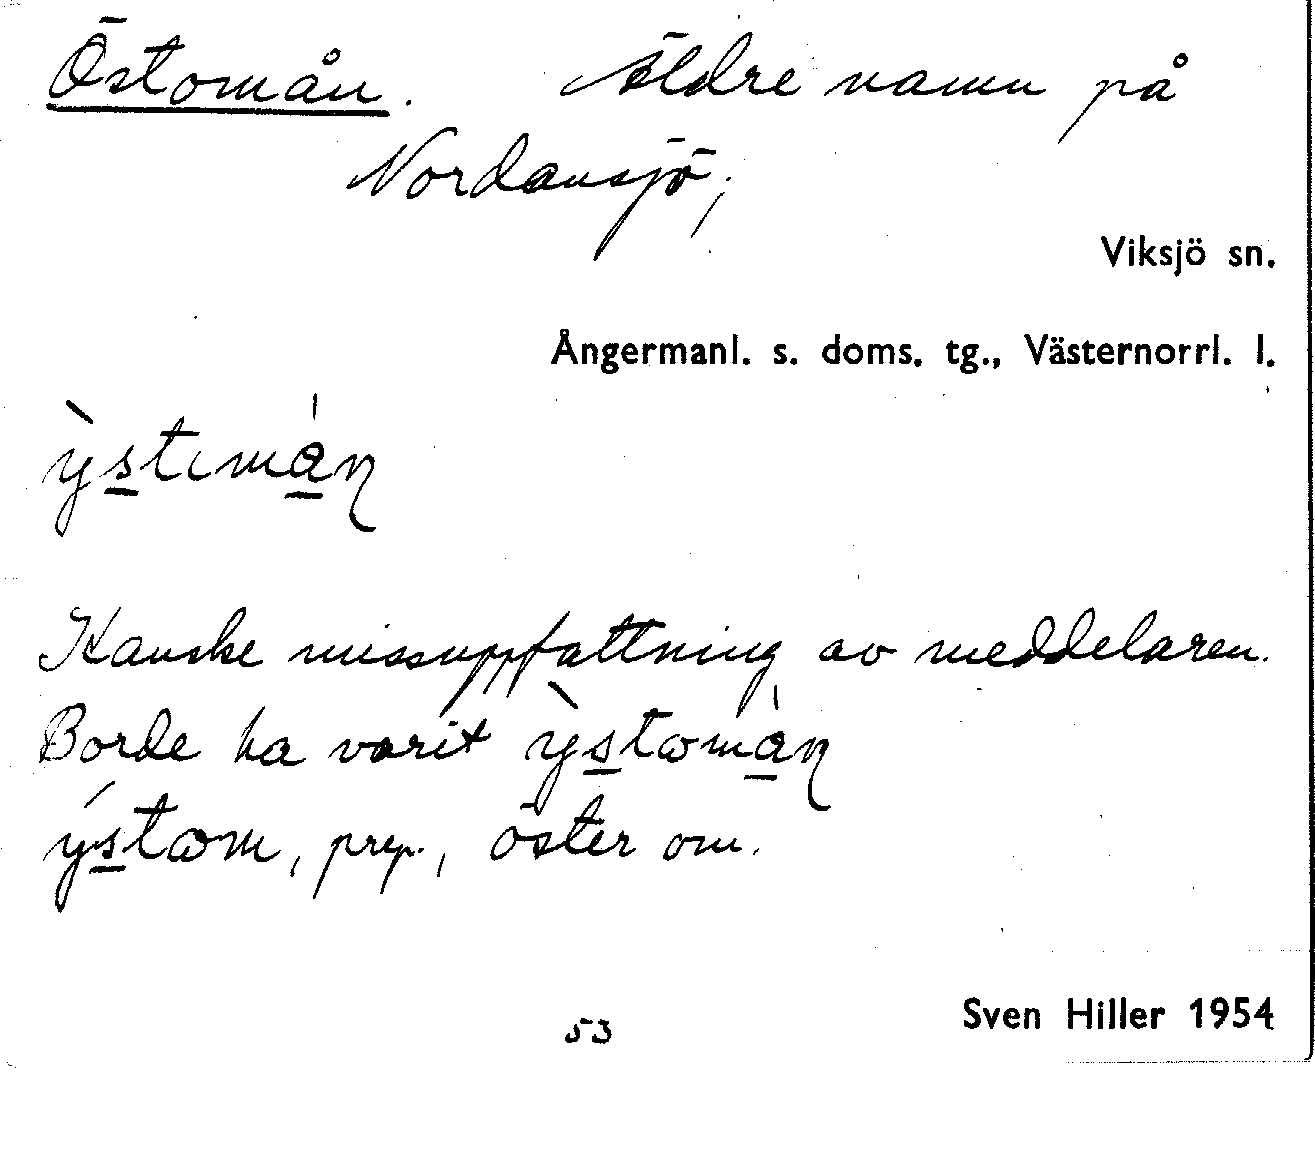 Östomån. Äldre namn på
Nordansjö;
Viksjö sn.
Ångermanl. s. doms. tg., Västernorrl. l.
ỳstɩmàɳ
Kanske missuppfattning av meddelaren.
Borde ha varit ỳstɷmàɳ
ýstɷm, prep., öster om.
53
Sven Hiller 1954